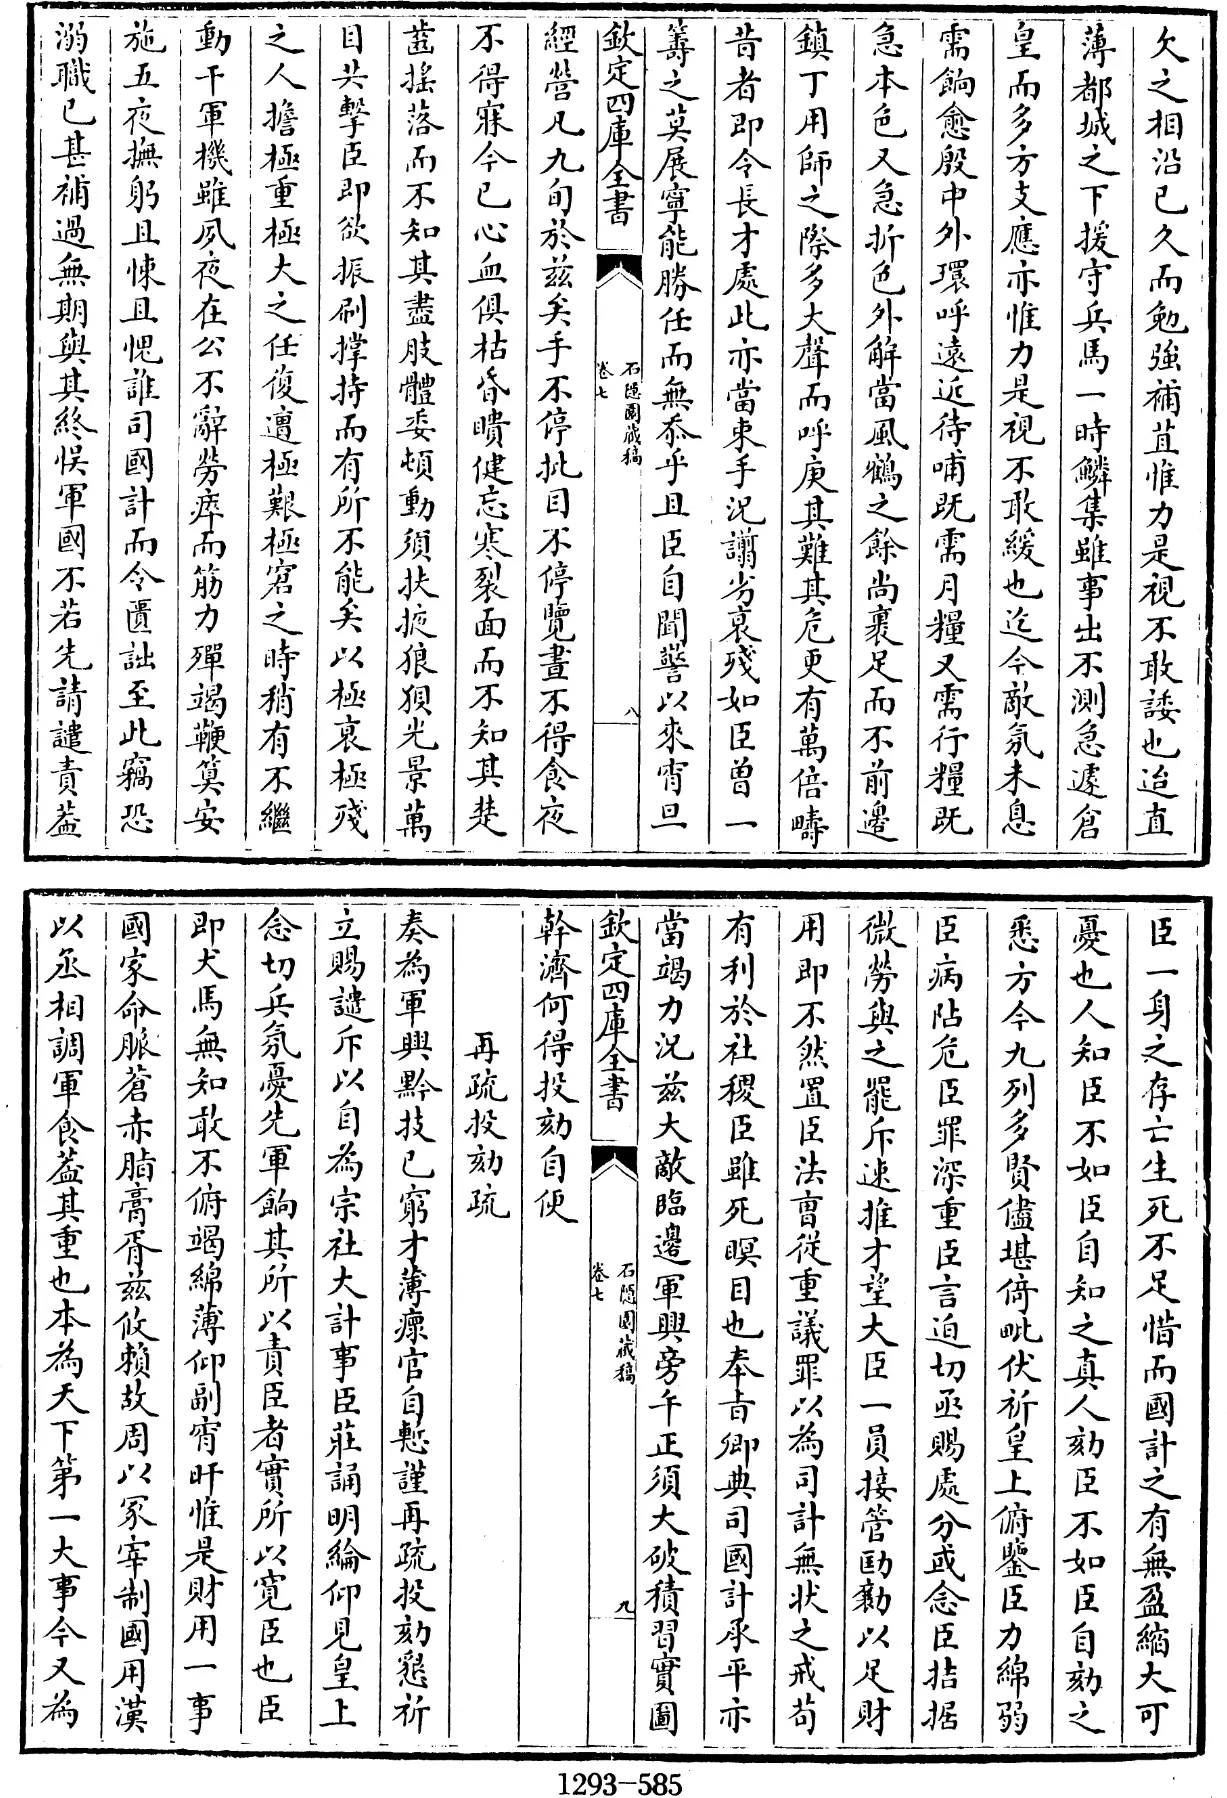 欠之相沿已久而勉強補苴惟力是視不敢諉也迨直
薄都城之下援守兵馬一時鱗集雖事出不測急遽倉
皇而多方支應亦惟力是視不敢緩也迄今敵氛未息
需餉愈殷中外環呼遠近待哺既需月糧又需行糧既
急本色又急折色外解當風鶴之餘尚裹足而不前邊
鎮丁用師之際多大聲而呼庚其難其危更有萬倍疇
昔者即令長才處此亦當束手況譾劣衰殘如臣曾一
籌之莫展寧能勝任而無忝乎且臣自聞警以來宵旦
欽定四庫全書
石隱園藏稿
卷七
八
經營凡九旬於茲矣手不停批目不停覽晝不得食夜
不得寐今已心血俱枯昏瞶健忘寒裂面而不知其楚
蓋搖落而不知其盡肢體委頓動須扶掖狼狽光景萬
目共擊臣即欲振刷撑持而有所不能矣以極衰極殘
之人擔極重極大之任復遭極艱極窘之時稍有不繼
動干軍機雖夙夜在公不辭勞瘁而筋力殫竭鞭箠安
施五夜撫躬且悚且愧誰司國計而令匱詘至此竊恐
溺職已甚補過無期與其終悞軍國不若先請譴責葢
臣一身之存亡生死不足惜而國計之有無盈縮大可
憂也人知臣不如臣自知之真人劾臣不如臣自劾之
悉方今九列多賢儘堪倚毗伏祈皇上俯鑒臣力綿弱
臣病阽危臣罪深重臣言迫切亟賜處分或念臣拮据
微勞與之罷斥速推才望大臣一員接管劻勷以足財
用即不然置臣法曹從重議罪以為司計無狀之戒苟
有利於社稷臣雖死瞑目也奉旨卿典司國計承平亦
當竭力況茲大敵臨邊軍興旁午正須大破積習實圖
欽定四庫全書
石隱園藏稿
卷七
九
幹濟何得投劾自便
再疏投劾疏
奏為軍興黔技已窮才薄瘝官自慙謹再疏投劾懇祈
立賜譴斥以自為宗社大計事臣莊誦明綸仰見皇上
念切兵氛憂先軍餉其所以責臣者實所以寬臣也臣
即犬馬無知敢不俯竭綿薄仰副宵旰惟是財用一事
國家命脈蒼赤脂膏胥茲攸賴故周以冢宰制國用漢
以丞相調軍食葢其重也本為天下第一大事今又為
1293-585